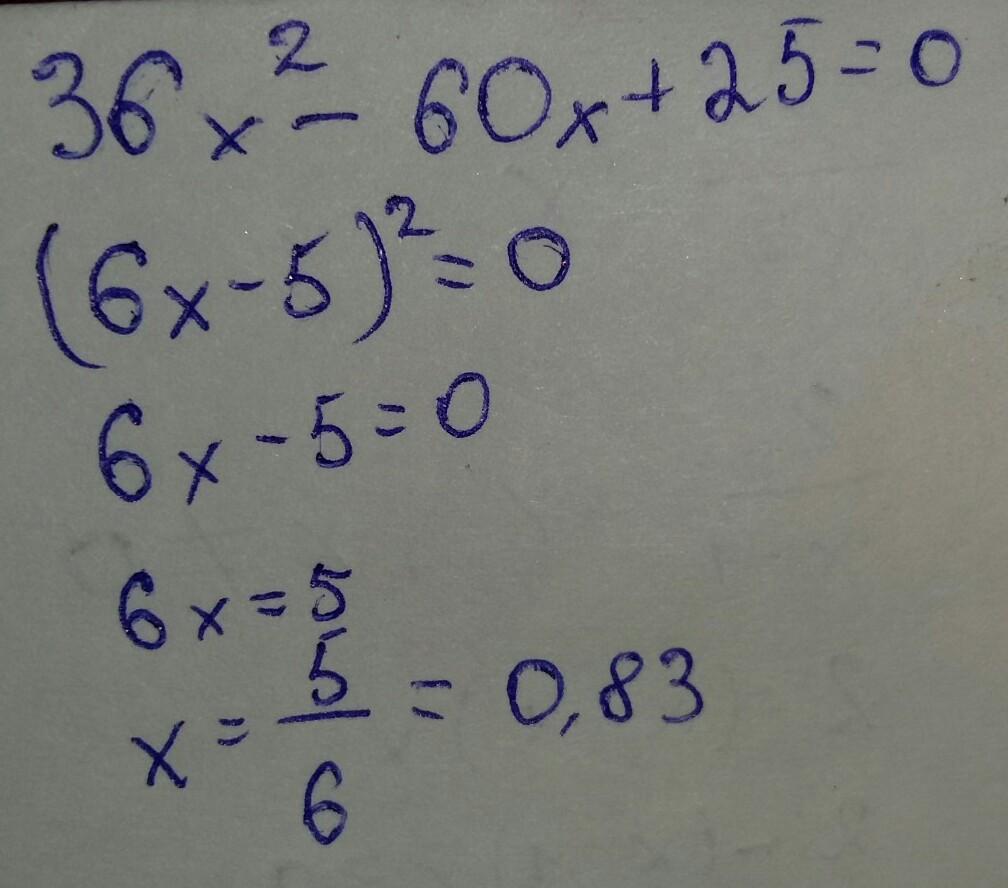 36x² - 60x + 25 = 0
(6x - 5)² = 0
6x - 5 = 0
6x = 5
x = 5/6 = 0,83